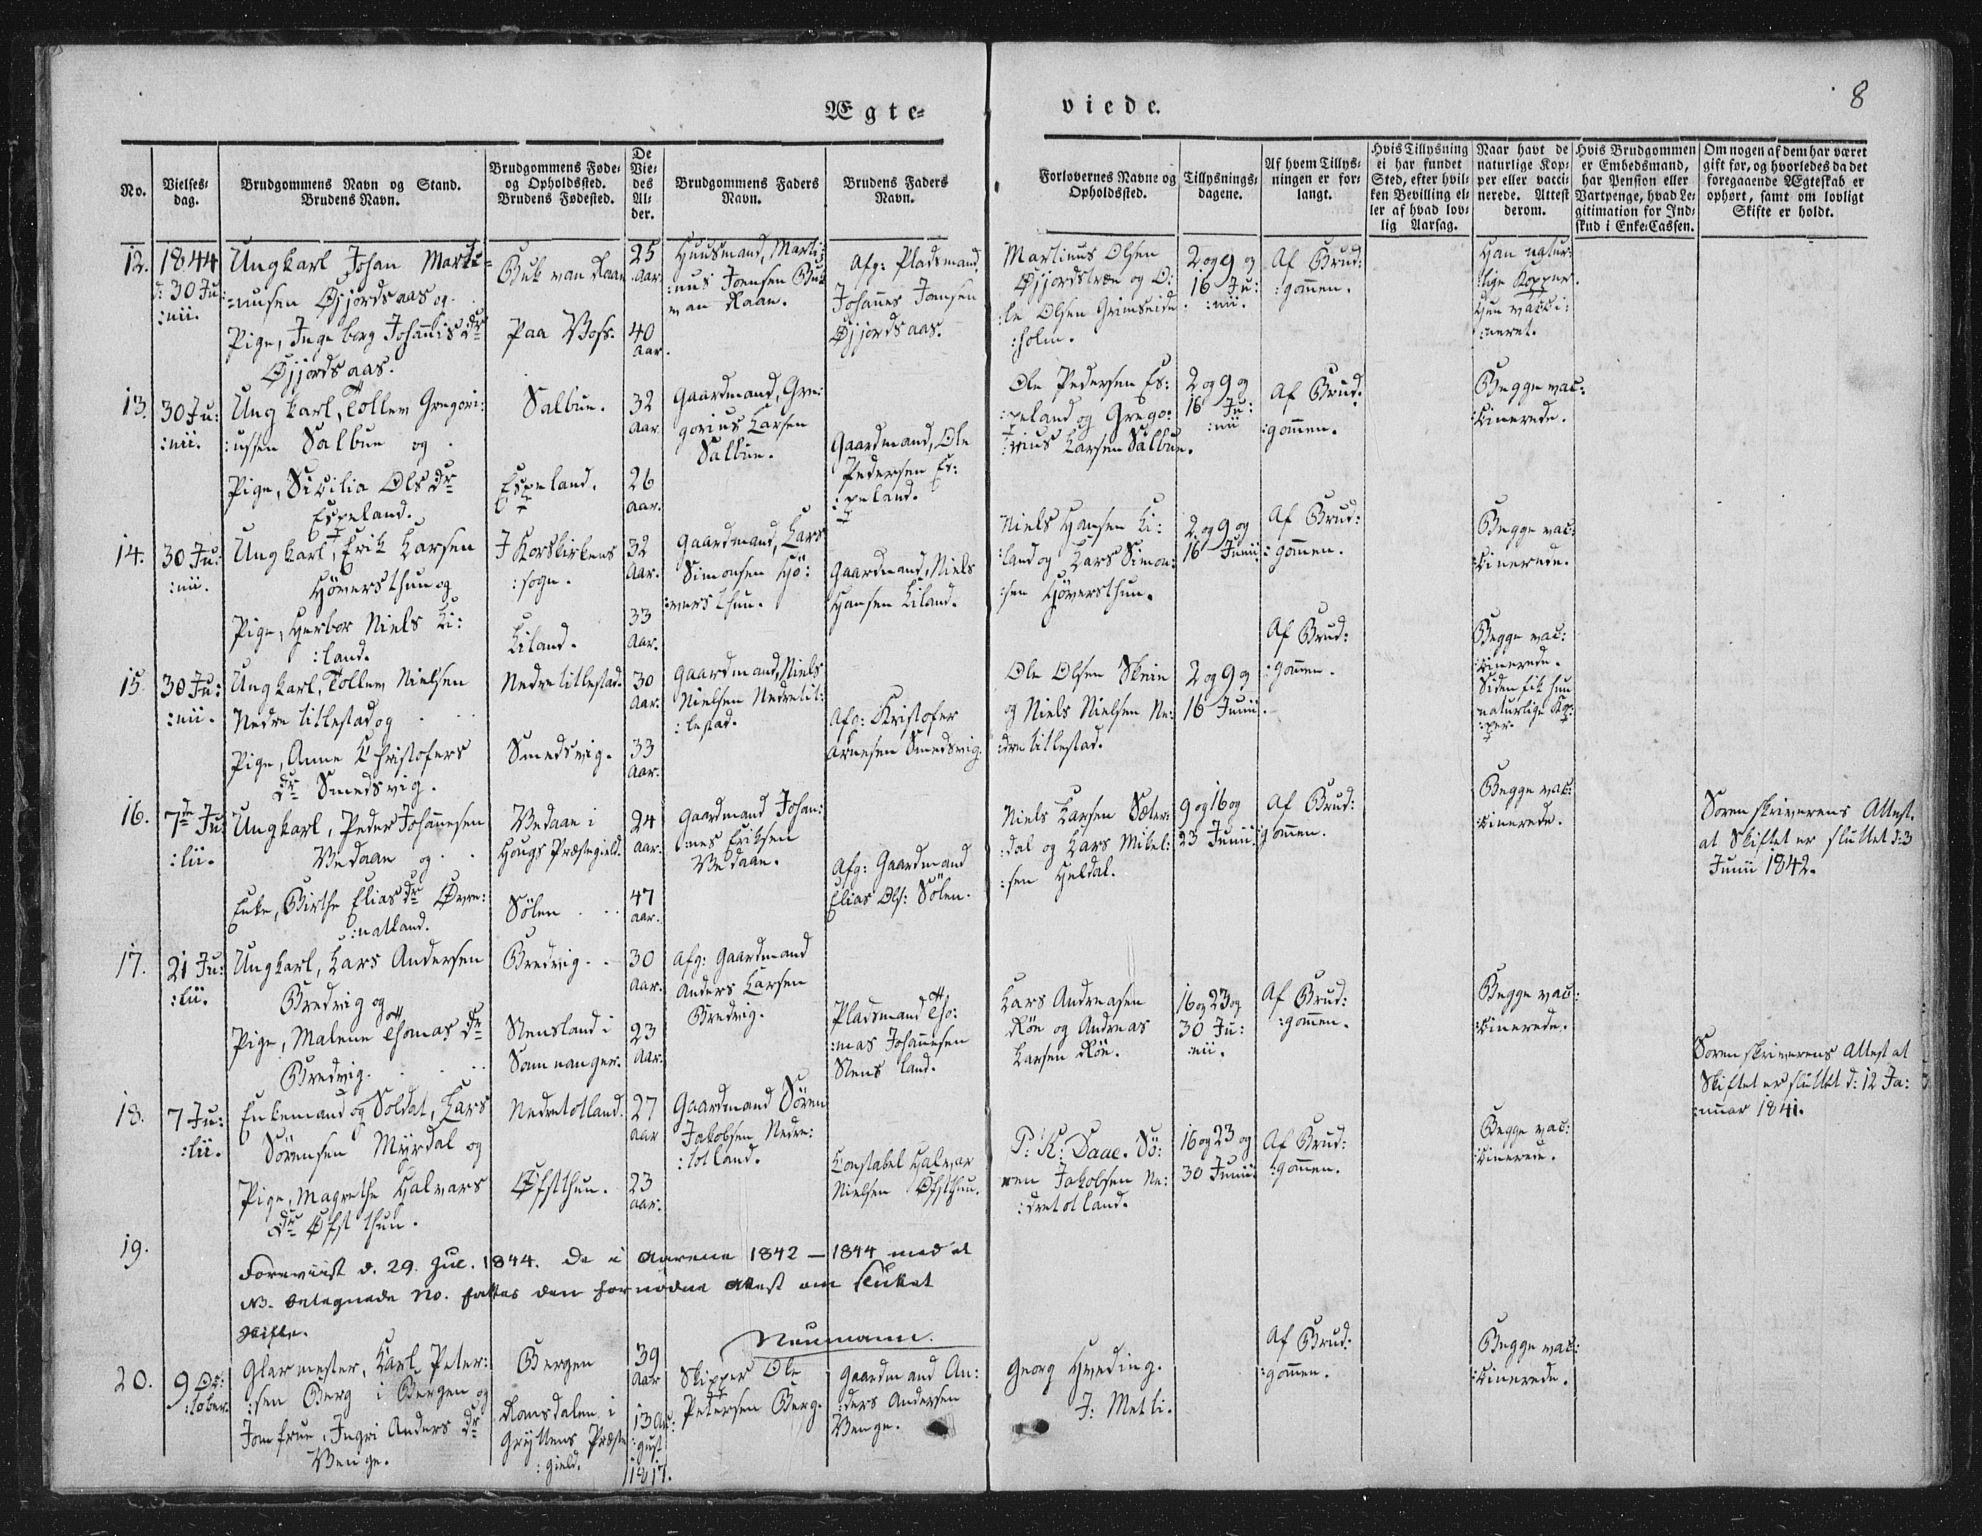 8
Ægte-
viede.
No.
Vielses-
dag.
Brudgommens Navn og Stand.
Brudens Navn.
Brudgommens Føde-
og Opholdssted.
Brudens Fødested.
De
Vie-
des
Al-
der.
Brudgommens Faders
Navn.
Brudens Faders
Navn.
Forlovernes Navne og
Opholdssted.
Tillysnings-
dagene.
Af hvem Tillys-
ningen er for-
langt.
Hvis Tillysning
ei har fundet
Sted, efter hvil-
ken Bevilling el-
ler af hvad lov-
lig Aarsag.
Naar havt de
naturlige Kop-
per eller vacci-
nerede. Attest
derom.
Hvis Brudgommen
er Embedsmand,
har Pension eller
Vartpenge, hvad Le-
gitimation for Ind-
skud i Enke-Cassen.
Om nogen af dem har været
gift før, og hvorledes da det
foregaaende Ægteskab er
ophørt, samt om lovligt
Skifte er holdt.
12.
1844
d: 30 Ju:
:nii.
Ungkarl Johan Marti-
=nusen Øjjordsaas og
Pige, Ingeborg Johanis dr
Øjjordsaas.
Paa Voss.
25
Aar.
40
Aar.
Huusmand, Marti:
:nus Joensen
Afg: Pladsmand
Johannes Joensen
Øjjordsaas.
Martinus Olsen
Øjjordstræe og O:
:le Olsen Grimseide
:holm.
2 og 9 og
16 Ju:
:nii.
Af Brud:
:gommen.
Han natur:
:lige Kopper.
Hun vacci:
:neret.
13.
30 Ju:
:nii.
Ungkarl, Tollev Gregori:
:ussen Salbue og
Pige, Sicilia Ols dr
Espeland.
Salbue.
Espeland.
32
Aar.
26
Aar.
Gaardmand, Gre:
gorius Larsen
Salbue.
Gaardmand, Ole
Pedersen Es:
:peland.
Ole Pedersen Es:
:peland og Grego:
:rius Larsen Salbue.
2 og 9 og
16 Ju:
:nii
Af Brud:
:gommen.
Begge vac:
:cinerede.
14.
30 Ju:
:nii.
Ungkarl, Erik Larsen
Hjöversthun og
Pige, Herbor Niels Li:
:land.
I Korskirkens
:sogn.
Liland.
32
Aar.
33
Aar.
Gaardmand, Lars
Simonsen Hjö:
:versthun.
Gaardmand, Niels
Hansen Liland.
Niels Hansen Li:
:land og Lars Simon:
:sen Hjöversthun.
2 og 9 og
16 Junii
Af Brud:
:gommen.
Begge vac:
:cinerede.
15.
30 Ju:
:nii.
Ungkarl, Tollev Nielsen
Nedre Titlestad og
Pige, Anne Christofers
dr Smedsvig.
Nedretitlestad.
Smedsvig.
30
Aar.
33
Aar.
Gaardmand, Niels
Nielsen Nedretit:
:lestad.
Afg: Kristofer
Arnesen Smedsvig.
Ole Olsen Skeie
og Niels Nielsen Ne:
:dretitlestad.
2 og 9 og
16 Junii.
Af Brud:
:gommen.
Begge vac:
:cinerede.
Siden fik hun
naturlige Kop:
:per.
16.
7de Ju:
:lii.
Ungkarl, Peder Johannesen
Vedaae og
Enke, Birthe Elias dr Øvre:
:natland.
Vedaae i
Hougs Præstegield.
Sölen
24
Aar.
47
Aar.
Gaardmand Johan:
:nes Eriksen
Vedaae.
Afg: Gaardmand
Elias Ols: Sölen.
Niels Larsen Sæter:
:dal og Lars Mikel:
:sen Heldal.
9 og 16 og
23 Junii.
Af Brud:
gommen.
Begge vac:
:cinerede.
Sorenskriverens Attest.
at Skiftet er sluttet d: 3
Junii 1842.
17.
21 Ju:
:lii.
Ungkarl, Lars Andersen
Bredvig og
Pige, Malene Thomas dr
Bredvig.
Bredvig.
Stensland i
Samnanger.
30
Aar.
23
Aar.
Afg: Gaardmand
Anders Larsen
Bredvig.
Pladsmand Tho:
:mas Johannesen
Stensland.
Lars Andreasen
Röe og Andreas
Larsen Röe.
16 og 23 og
30 Ju:
:nii.
Af Brud:
:gommen.
Begge vac:
:cinerede.
18.
7 Ju:
:lii.
Enkemand og Soldat, Lars
Sörensen Myrdal og
Pige, Magrethe Halvars
dr Øfsthun.
Nedretotland.
Øfsthun.
27
Aar
23
Aar.
Gaardmand Sören
Jakobsen Nedre:
:totland.
Konstabel Halvar
Nielsen Øfsthun.
P: K: Daae. Sö:
ren Jakobsen Ne:
:dretotland.
16 og 23 og
30 Junii.
Af Brud:
:gommen.
Begge vac:
:cinerede.
Sorenskriverens Attest at
Skiftet er sluttet d: 12 Ja:
:nuar 1841.
19.
Foreviist d. 29. Jul. 1844. De i Aarene 1842 - 1844 med et
NB. betegnede No. fattes den fornødne Attest om sluttet
Skifte.
Neumann.
20.
9 Oc:
:tober.
Glarmester, Karl Peter:
:sen Berg i Bergen og
Jomfrue, Ingri Anders dr
Venge.
Bergen
Romsdalen i
Gryttens Præste
:gield.
39
Aar
13 Au:
:gust
1817.
Skipper Ole
Petersen Berg.
Gaardmand An:
:ders Andersen
Venge.
Georg Hveding.
J: Metli.
Af Brud:
:gommen.
Begge vac:
:cinerede.